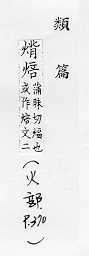 類篇
焙蒲昧切煏也
或作焙文二
(火部 P.370)